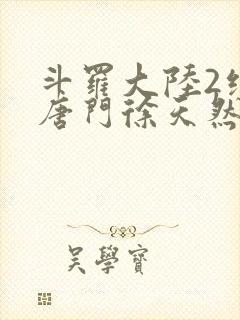 斗羅大陸2
唐門徐天然
吳學寶